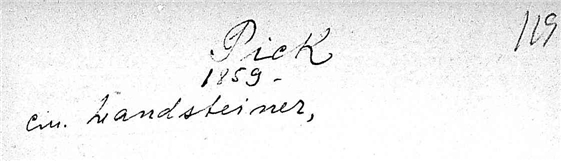 Pick 119
1859-
см. Landsteiner,